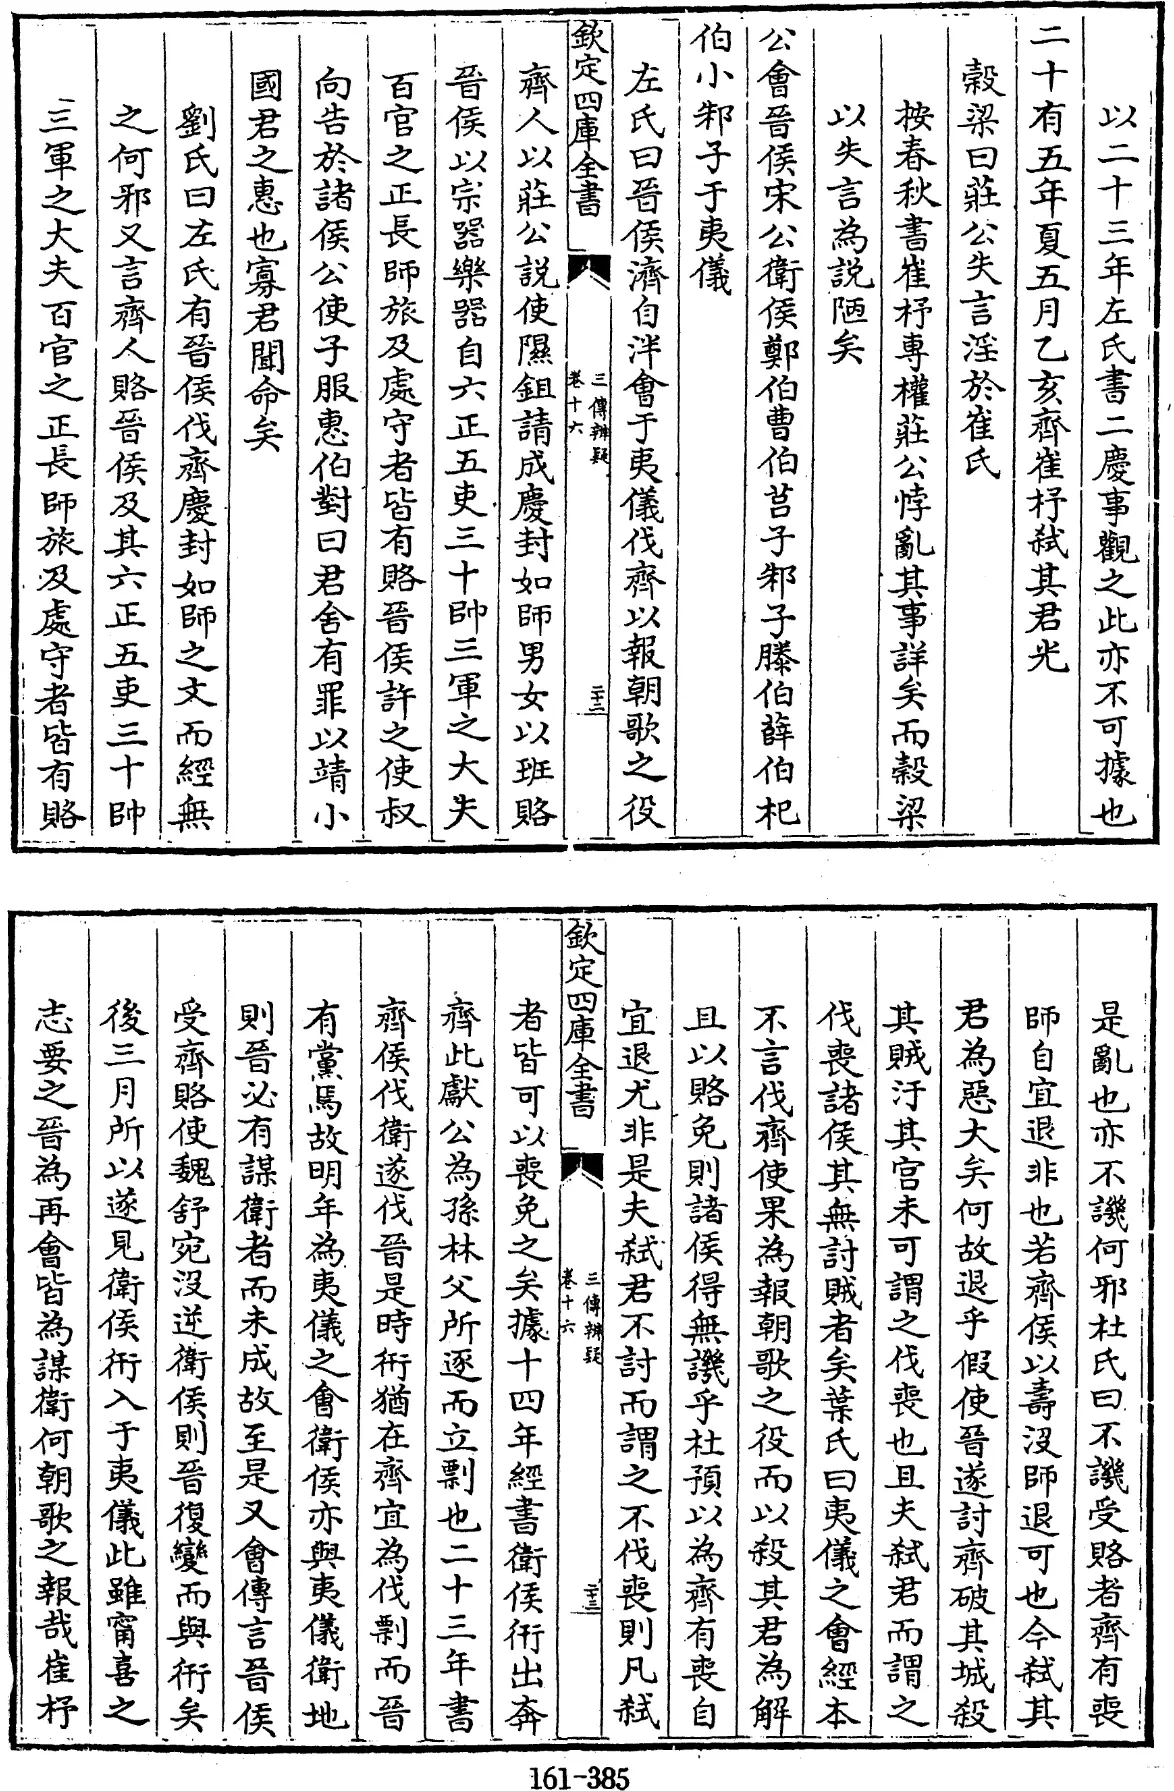 以二十三年左氏書二慶事觀之此亦不可據也
二十有五年夏五月乙亥齊崔杼弑其君光
穀梁曰莊公失言淫於崔氏
按春秋書崔杼專權莊公悖亂其事詳矣而穀梁
以失言為説陋矣
公會晉侯宋公衛侯鄭伯曹伯莒子邾子滕伯薛伯杞
伯小邾子于夷儀
左氏曰晉侯濟自泮會于夷儀伐齊以報朝歌之役
欽定四庫全書
三傳辨疑
卷十六
二十三
齊人以莊公説使隰鉏請成慶封如師男女以班賂
晉侯以宗器樂器自六正五吏三十帥三軍之大夫
百官之正長師旅及處守者皆有賂晉侯許之使叔
向告於諸侯公使子服惠伯對曰君舍有罪以靖小
國君之惠也寡君聞命矣
劉氏曰左氏有晉侯伐齊慶封如師之文而經無
之何邪又言齊人賂晉侯及其六正五吏三十帥
三軍之大夫百官之正長師旅及處守者皆有賂
是亂也亦不譏何邪杜氏曰不譏受賂者齊有喪
師自宜退非也若齊侯以壽沒師退可也今弑其
君為惡大矣何故退乎假使晉遂討齊破其城殺
其賊汙其宫未可謂之伐喪也且夫弑君而謂之
伐喪諸侯其無討賊者矣葉氏曰夷儀之會經本
不言伐齊使果為報朝歌之役而以殺其君為解
且以賂免則諸侯得無譏乎杜預以為齊有喪自
宜退尤非是夫弑君不討而謂之不伐喪則凡弑
欽定四庫全書
三傳辨疑
卷十六
二十三
者皆可以喪免之矣據十四年經書衛侯衎出奔
齊此獻公為孫林父所逐而立剽也二十三年書
齊侯伐衛遂伐晉是時衎猶在齊宜為伐剽而晉
有黨焉故明年為夷儀之會衛侯亦與夷儀衛地
則晉必有謀衛者而未成故至是又會傳言晉侯
受齊賂使魏舒宛沒逆衛侯則晉復變而與衎矣
後三月所以遂見衛侯衎入于夷儀此雖甯喜之
志要之晉為再會皆為謀衛何朝歌之報哉崔杼
161-385